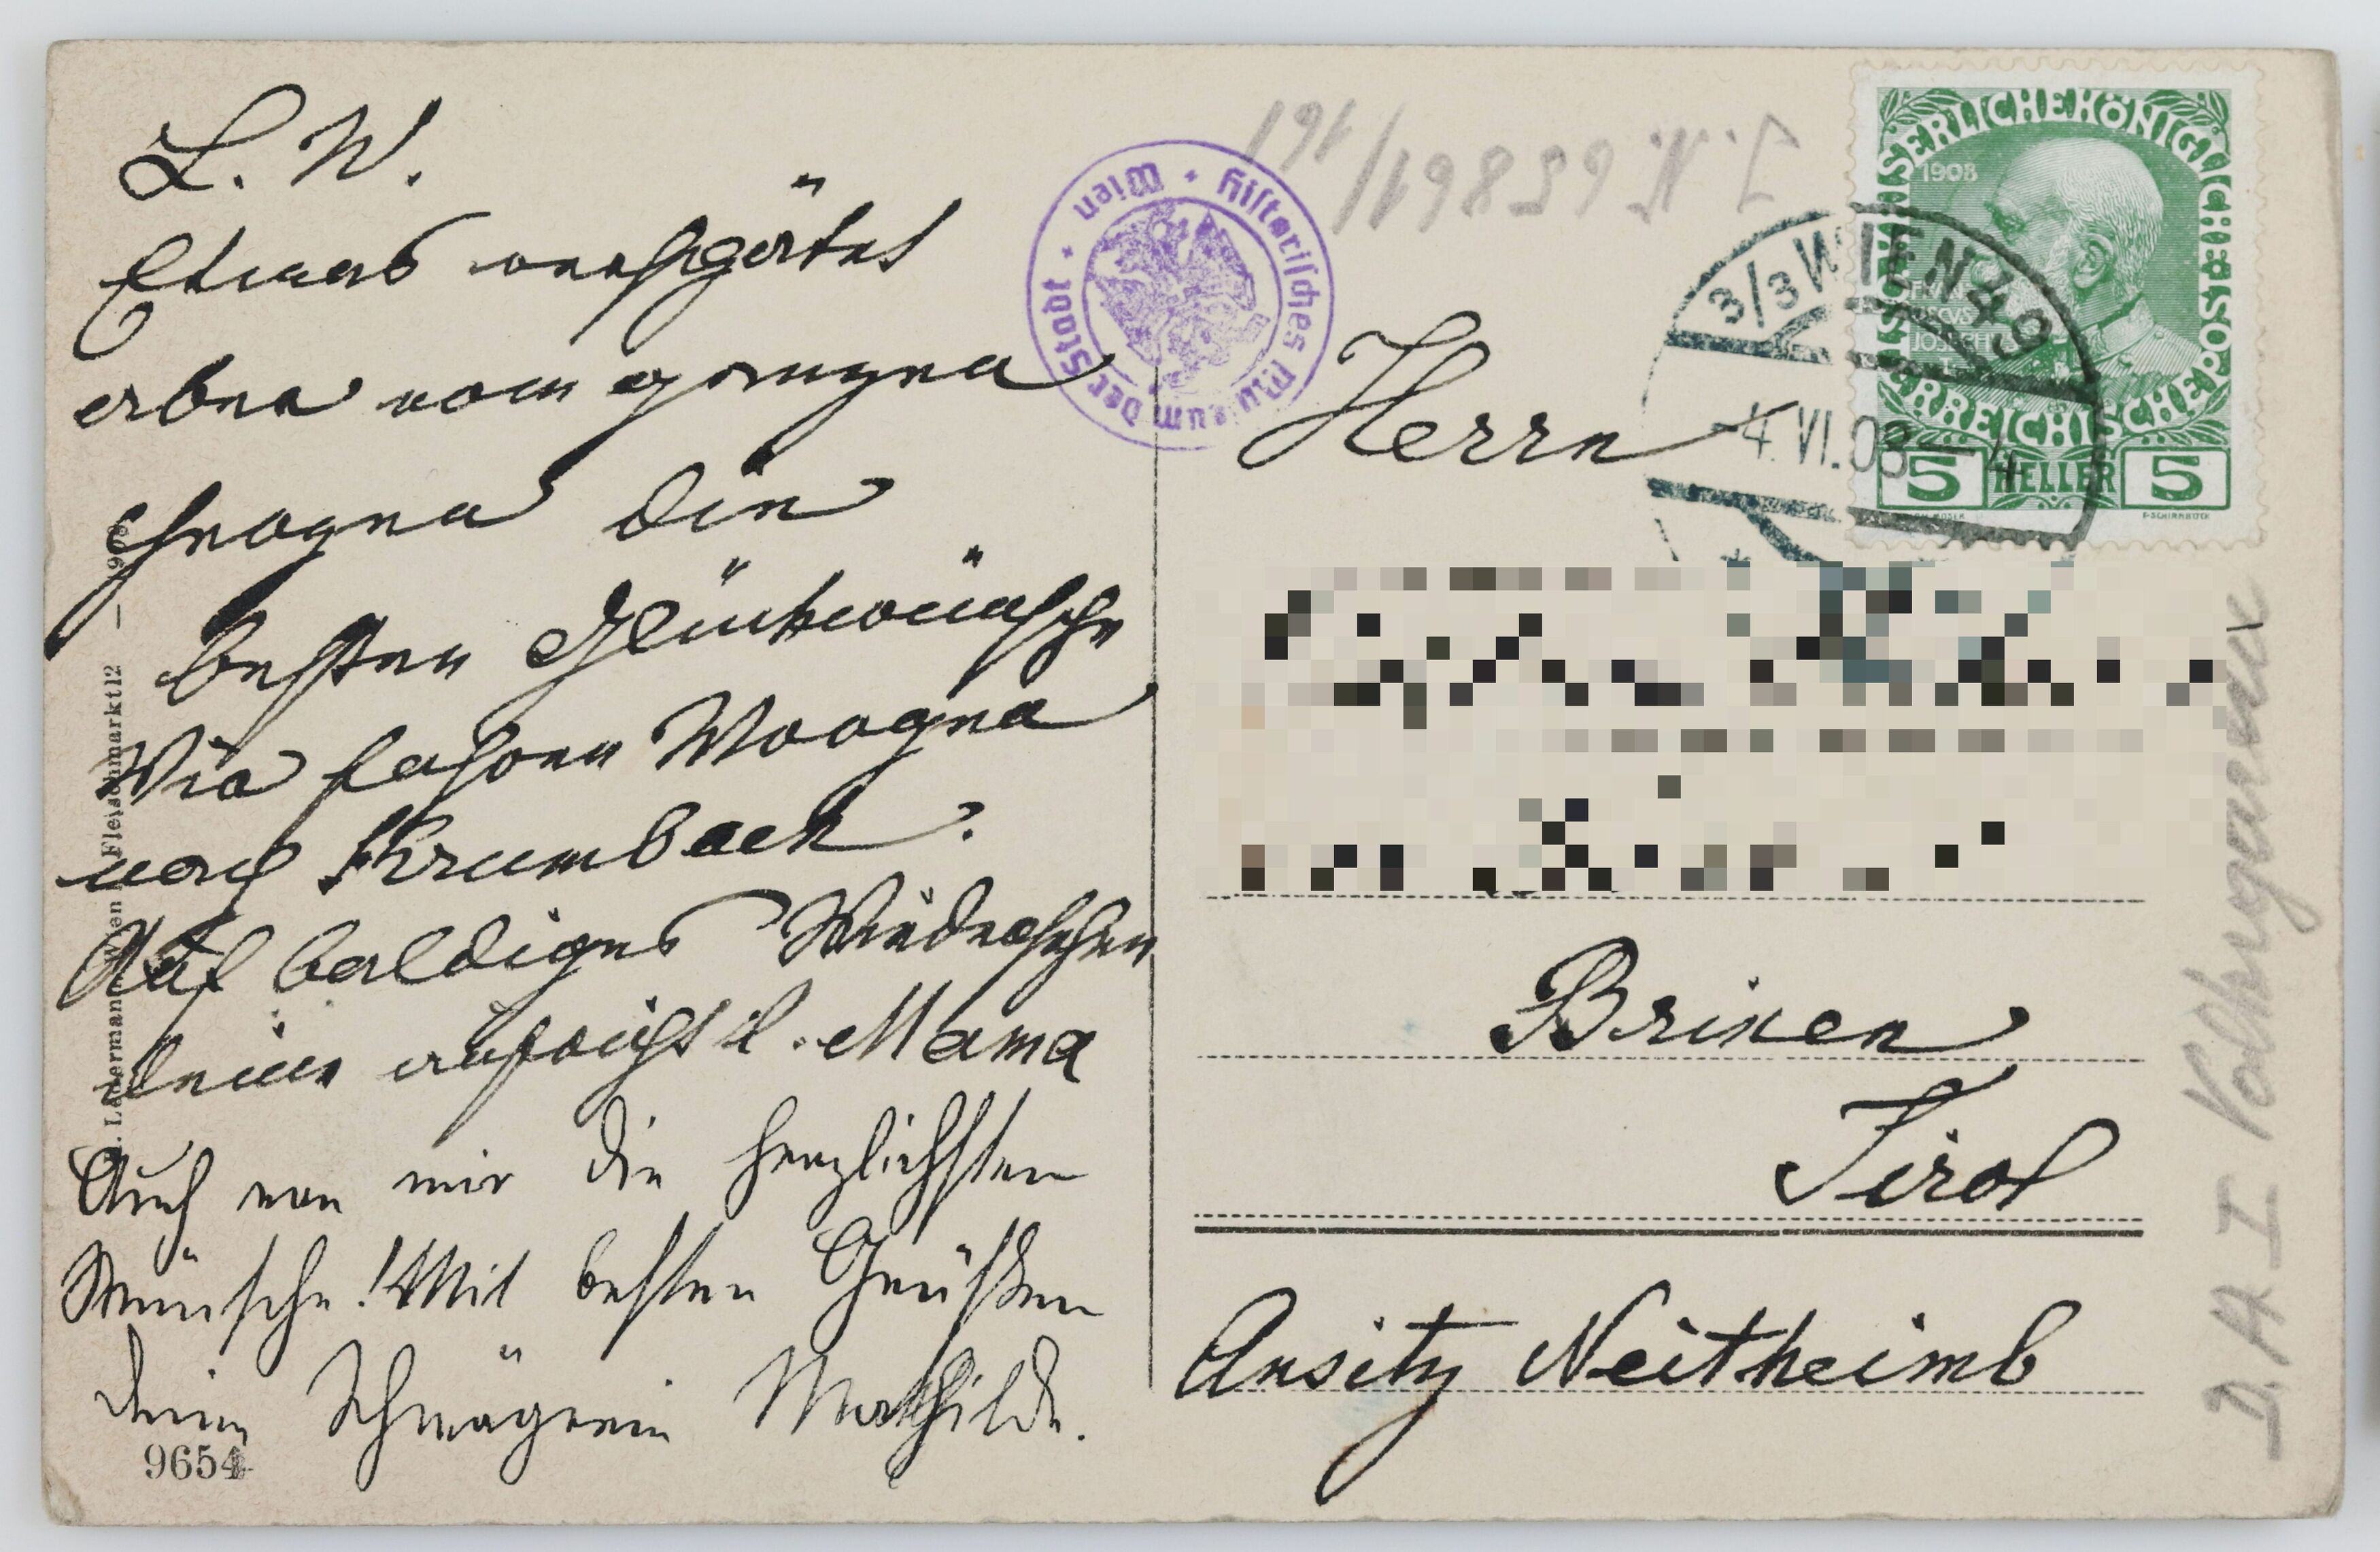 L. W.
Etwas verspätet
aber vom ganzen
Herzen die
besten Glückwünsche
Wir fahren Morgen
nach Krumbach.
Auf baldiges Wiedersehen
deine aufricht. l. Mama
Auch von mir die herzlichsten
Wünsche! Mit besten Grüßen
deine Schwägerin Mathilde.
9654
Ledermann, Wien I. Fleischmarkt 12 — 1908
Historisches Museum der Stadt Wien
I. N. 65861/161
KAISERLICHE KÖNIGLICHE ÖSTERREICHISCHE POST
1908
FRANCISCVS JOSEPH I
5 HELLER 5
3/3 WIEN 49
-4.VI.08-4
Herrn
Brixen
Tirol
Ansitz Neitheimb
D. A. I Volksgarten